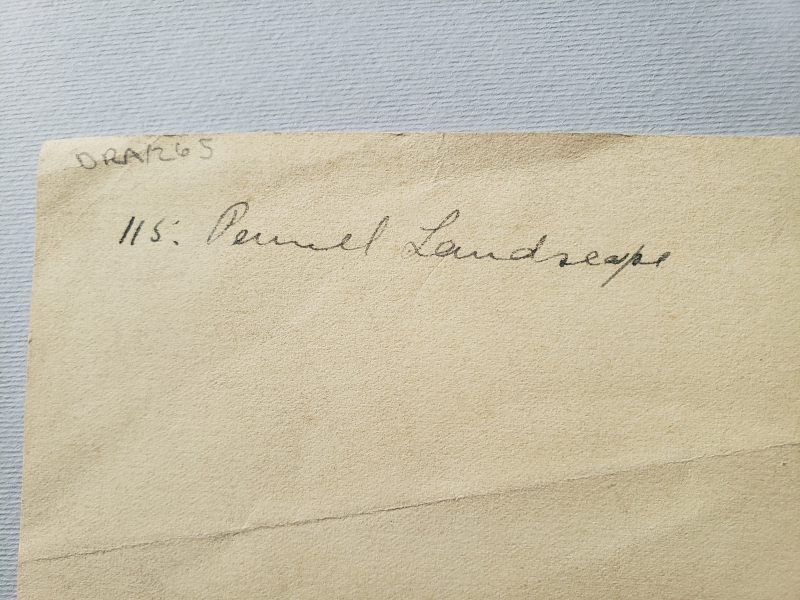 DRAR265
115. Pennell Landscape